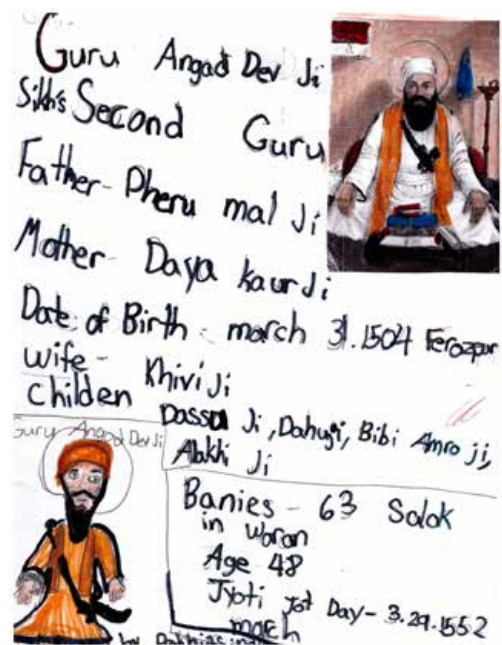 Guru Angad Dev Ji
Sikh's Second Guru
Father- Pheru mal Ji
Mother- Daya kaur Ji
Date of Birth - march 31.1504 Ferozpur
wife- Khivi Ji
childen
Dassu Ji, Dahuji, Bibi Amro ji,
Alakhi Ji
Guru Angad Dev Ji
Banies - 63 Salok
in waran
Age 48
Jyoti Jot Day- 3.29.1552
march
by